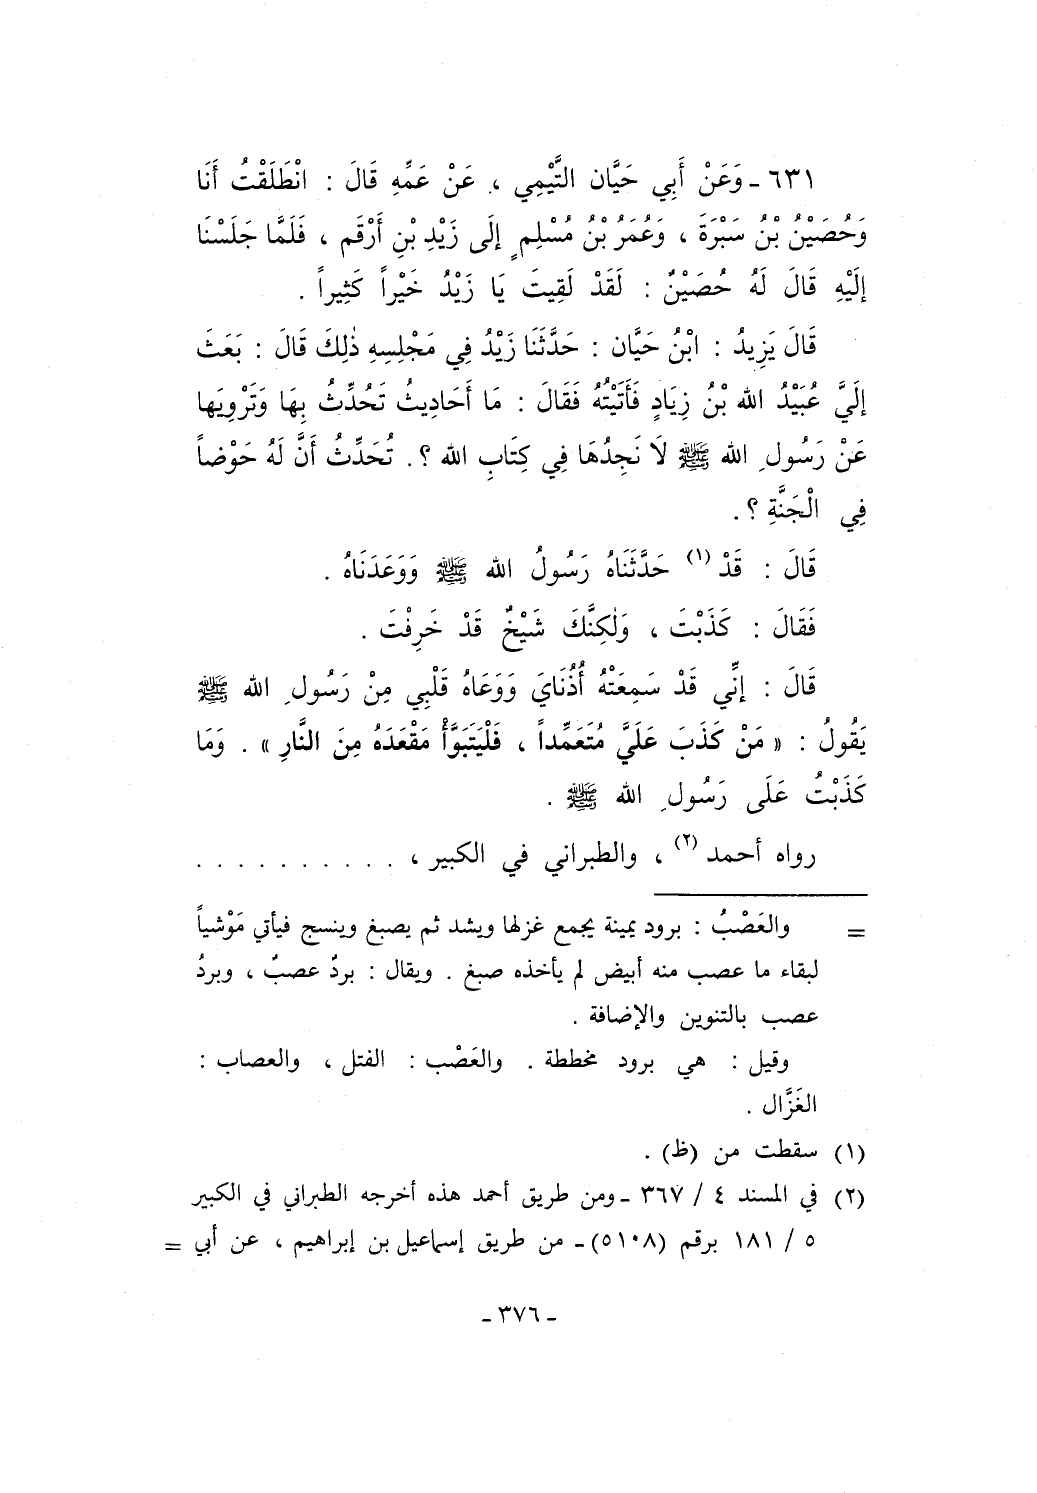 ٦٣١ - وَعَنْ أَبِي حَيَّان التَّيْمِي ، عَنْ عَمِّهِ قَالَ : انْطَلَقْتُ أَنَا
وَحُصَيْنُ بْنُ سَبْرَةَ ، وَعُمَرُ بْنُ مُسْلِمٍ إِلَى زَيْدِ بْنِ أَرْقَم ، فَلَمَّا جَلَسْنَا
إِلَيْهِ قَالَ لَهُ حُصَيْنٌ : لَقَدْ لَقِيتَ يَا زَيْدُ خَيْراً كَثِيراً .
قَالَ يَزِيدُ : ابْنُ حَيَّان : حَدَّثَنَا زَيْدٌ فِي مَجْلِسِهِ ذٰلِكَ قَالَ : بَعَثَ
إِلَيَّ عُبَيْدُ الله بْنُ زِيَادٍ فَأَتَيْتُهُ فَقَالَ : مَا أَحَادِيثُ تُحَدِّثُ بِهَا وَتَرْوِيَها
عَنْ رَسُولِ الله ﷺ لَا نَجِدُهَا فِي كِتَابِ الله ؟. تُحَدِّثُ أَنَّ لَهُ حَوْضاً
فِي الْجَنَّةِ ؟.
قَالَ : قَدْ (١) حَدَّثَنَاهُ رَسُولُ الله ﷺ وَوَعَدَنَاهُ .
فَقَالَ : كَذَبْتَ ، وَلٰكِنَّكَ شَيْخٌ قَدْ خَرِفْتَ .
قَالَ : إِنِّي قَدْ سَمِعَتْهُ أُذُنَايَ وَوَعَاهُ قَلْبِي مِنْ رَسُولِ الله ﷺ
يَقُولُ : « مَنْ كَذَبَ عَلَيَّ مُتَعَمِّداً ، فَلْيَتَبَوَّأْ مَقْعَدَهُ مِنَ النَّارِ » . وَمَا
كَذَبْتُ عَلَى رَسُولِ الله ﷺ .
رواه أحمد (٢) ، والطبراني في الكبير ، . . . . . . . . . .
= والعَصْبُ : برود يمينة يجمع غزلها ويشد ثم يصبغ وينسج فيأتي مَوْشياً
لبقاء ما عصب منه أبيض لم يأخذه صبغ . ويقال : بردٌ عصبٌ ، وبردُ
عصب بالتنوين والإضافة .
وقيل : هي برود مخططة . والعَصْب : الفتل ، والعصاب :
الغَزَّال .
(١) سقطت من (ظ) .
(٢) في المسند ٤ / ٣٦٧ - ومن طريق أحمد هذه أخرجه الطبراني في الكبير
٥ / ١٨١ برقم (٥١٠٨) - من طريق إسماعيل بن إبراهيم ، عن أبي =
- ٣٧٦ -